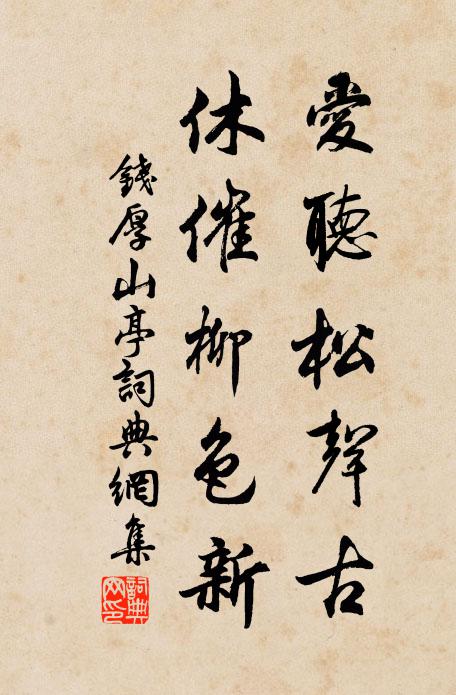 愛聽松聲古
休催柳色新
錢厚山亭詞典網集
詞典
网印